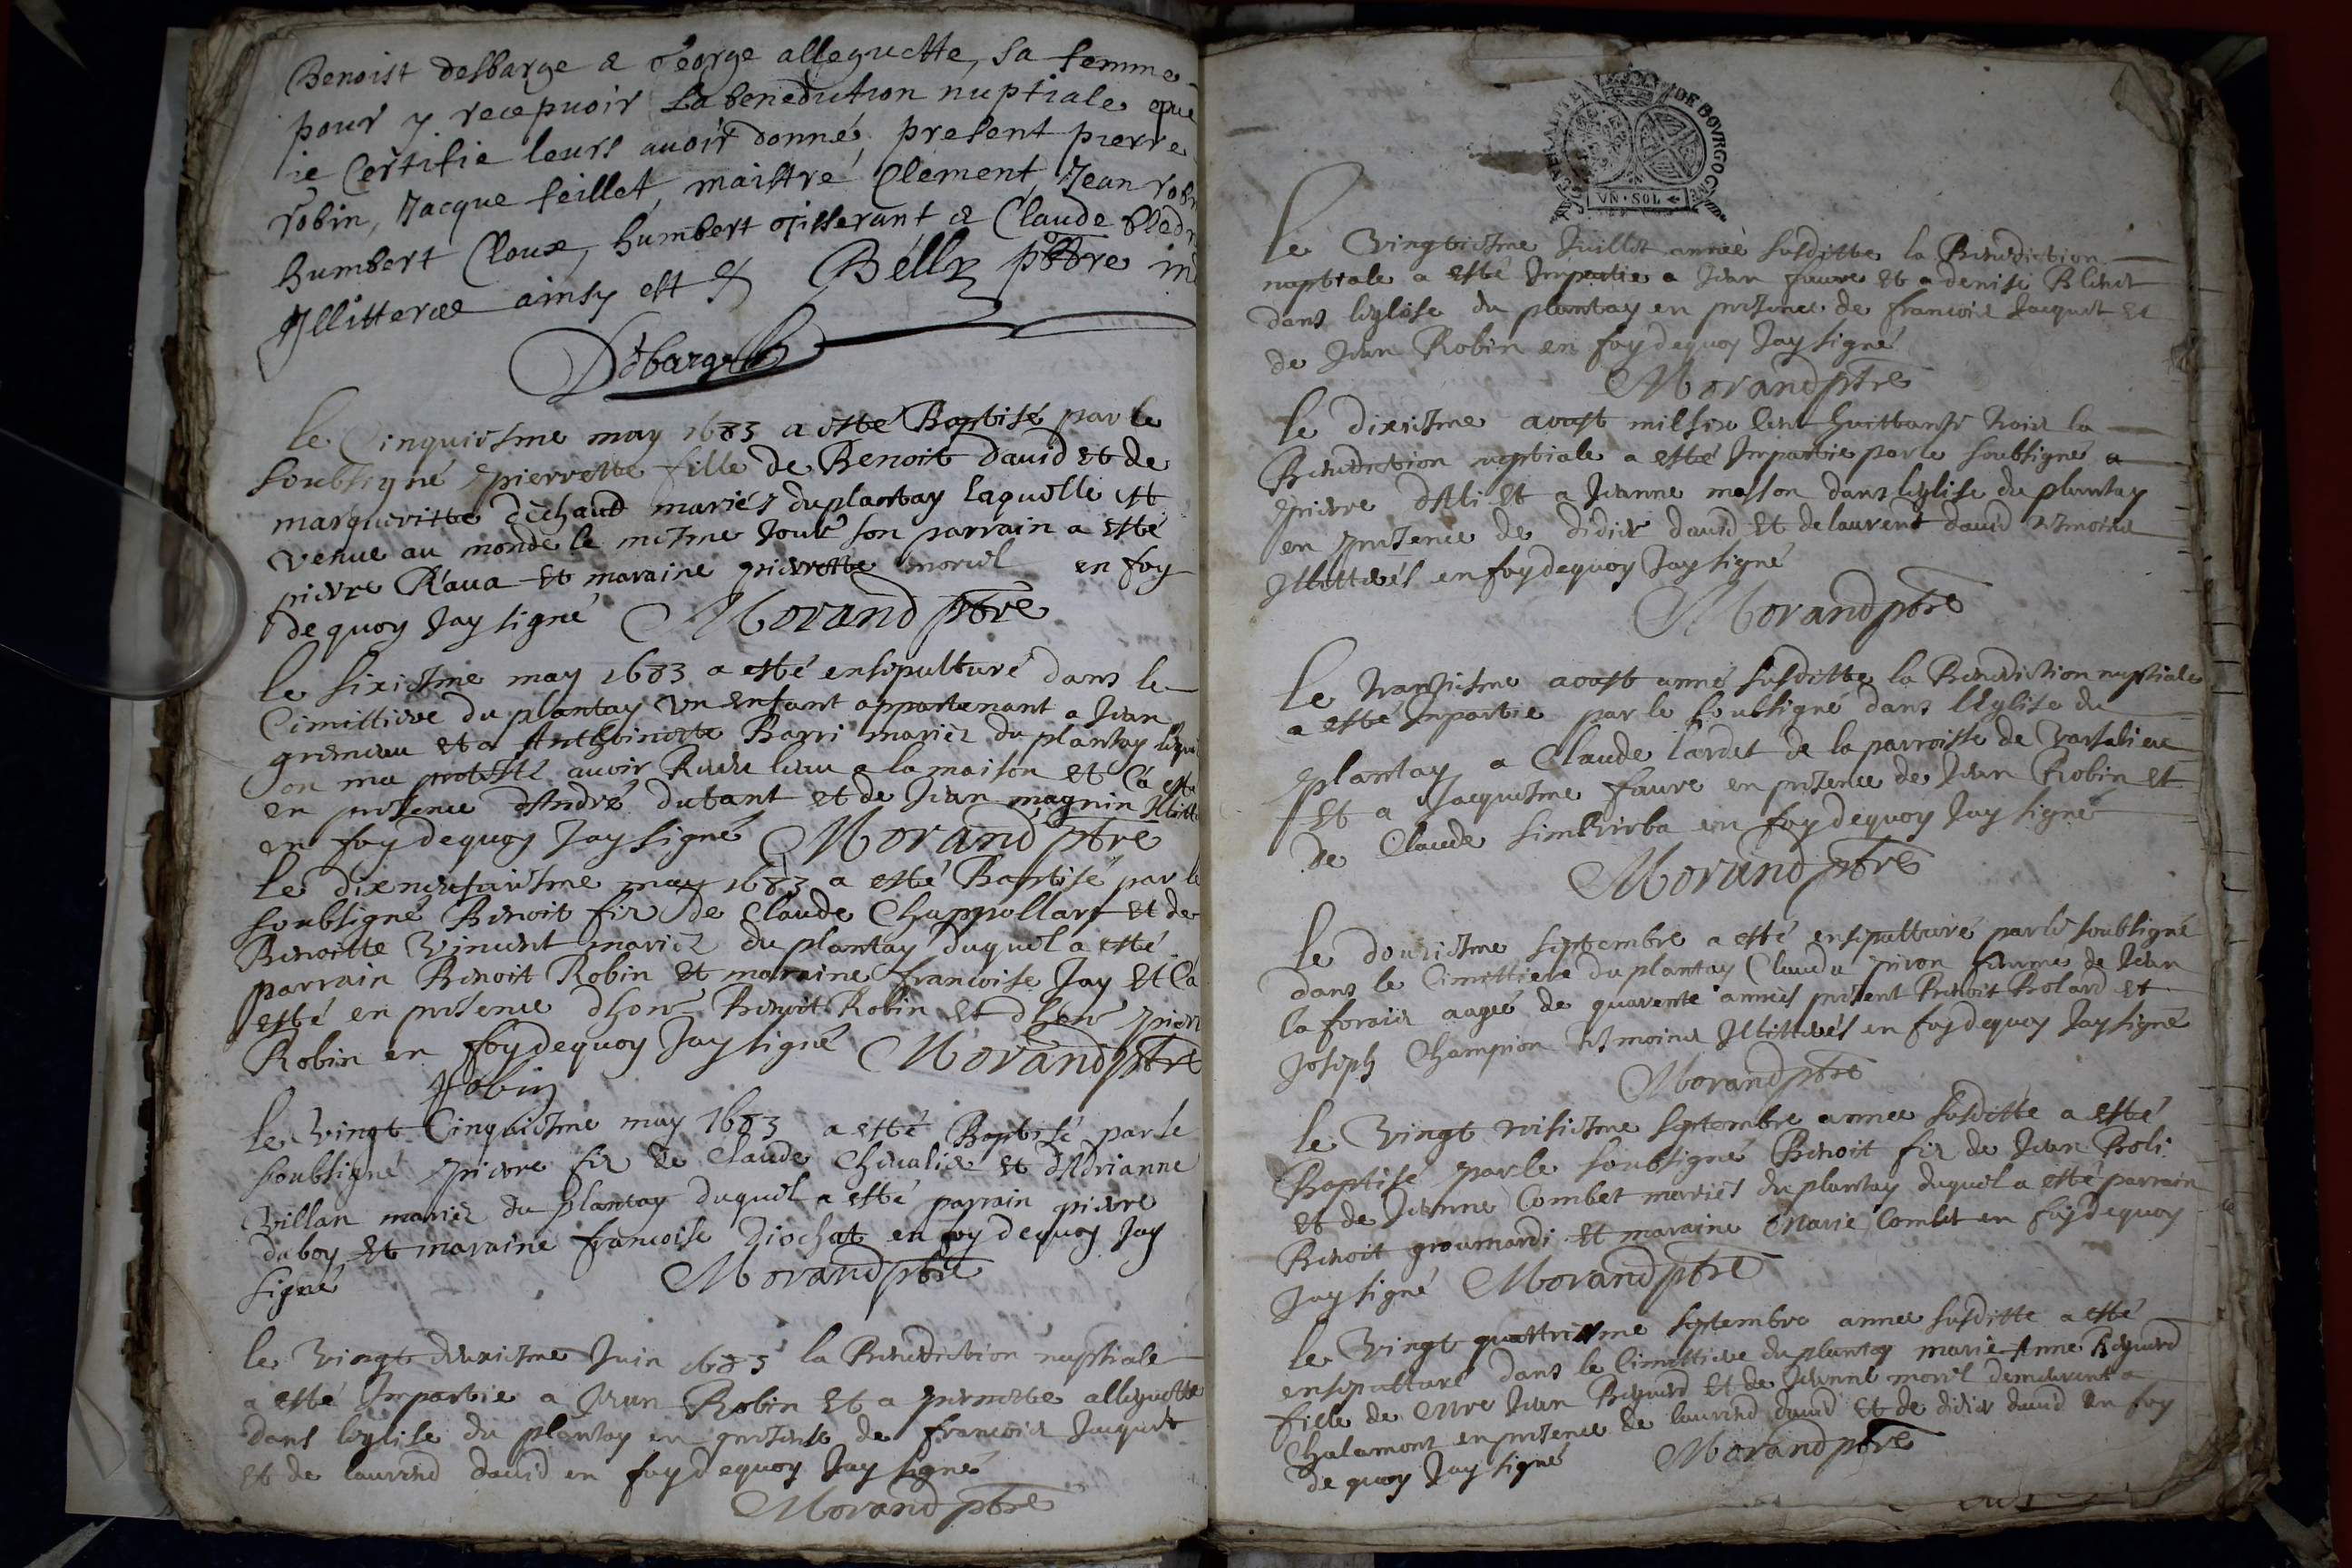 Benoist desbarge & George alleguette, sa femme
pour y recepvoir La benediction nuptiale que
ie Certifie leurs avoir donné, present pierre
robin, Jacque feillet, maistre Clement, Jean rob
humbert Cloux, humbert & Claude
Illitterez ainsy est Belly pbtre
Debarge
le Cinquiesme may 1683 a esté Baptisé par le
soubsigné pierrette fille de Benoit david et de
margueritte déchaud mariés du plantay laquelle est
venue au monde le mesme Jour son parrain a esté
pierre Raua et maraine pierrette morel en foy
de quoy Jay signé Morand pbtre
le sixiesme may 1683 a esté ensepulturé dans le
Cimittiere du plantay un enfant appartenant a Jean
et a Anthoinette Barri mariés du plantay
on ma protesté avoir lieau a la maison et Ca esté
en presence dAndré dutant et de Jean magnin Illitt
en foy dequoy Jay signé Morand ptre
le dixneufuiesme may 1683 a esté Baptisé par le
soubsigné Benoit fis de Claude Chappollart et de
Benoitte Vincent mariés du plantay duquel a esté
parrain Benoit Robin et maraine francoise Jay et Ca
esté en presence dhon Benoit Robin et dhon pier
Robin en foy dequoy Jay signé Morand ptre
Robin
le Vingt Cinquiesme may 1683 a esté Baptisé par le
soubsigné pierre fis de Claude Chevalier et dAdrianne
Villan mariés du plantay duquel a esté parrain pierre
duboy et maraine francoise Tiochat en foy dequoy Jay
signé Morand ptre
le Vingt deuxiesme Juin 1683 la Benediction nuptiale
a esté Impartie a Jean Robin et a pierrette alleguette
dans leglise du plantay en presence de francois Jacquet
et de laurend david en foy dequoy Jay signé
Morand pbtre
DE BOVRGOGNE
VN·SOL
le Vingtiesme Juillet année susditte la Benediction
nuptiale a esté Impartie a Jean faure et a denise Blanc
dans leglise du plantay en presence de francois Jacquet et
de Jean Robin en foy dequoy Jay signé
Morand ptre
le dixiesme aoust mil six Cent huittante trois la
Benediction nuptiale a esté Impartie par le soubsigné a
pierre dAli et a Jeanne masson dans leglise du plantay
en presence de didier david et de laurent david tesmoins
Illitterés en foy dequoy Jay signé
Morand pbtre
le trantiesme aoust année susditte la Benediction nuptiale
a esté Impartie par le soubsigné dans lEglise du
plantay a Claude lardet de la parroisse de Varsalieu
et a Jacquesme faure en presence de Jean Robin et
de Claude en foy dequoy Jay signé
Morand pbtre
le douziesme septembre a esté ensepulturé par le soubsigné
dans le Cimittiere du plantay Clauda piron femme de Jean
la forais aagée de quarente années present Benoit Bolard et
Joseph Champion tesmoins Illitterés en foy dequoy Jay signé
Morand ptre
le Vingt troisiesme septembre année susditte a esté
Baptisé par le soubsigné Benoit fis de Jean Boli
et de Jeanne Combet mariés du plantay duquel a esté parrain
Benoit groumardi et maraine Marie Combet en foy dequoy
Jay signé Morand ptre
le Vingt quattriesme septembre année susditte a esté
ensepulturé dans le Cimittiere du plantay marie Anne Beguerd
fille de Jean Beguerd et de Jeanne morel demeurant a
Chalamont en presence de laurend david et de didier david en foy
de quoy Jay signé Morand pbtre